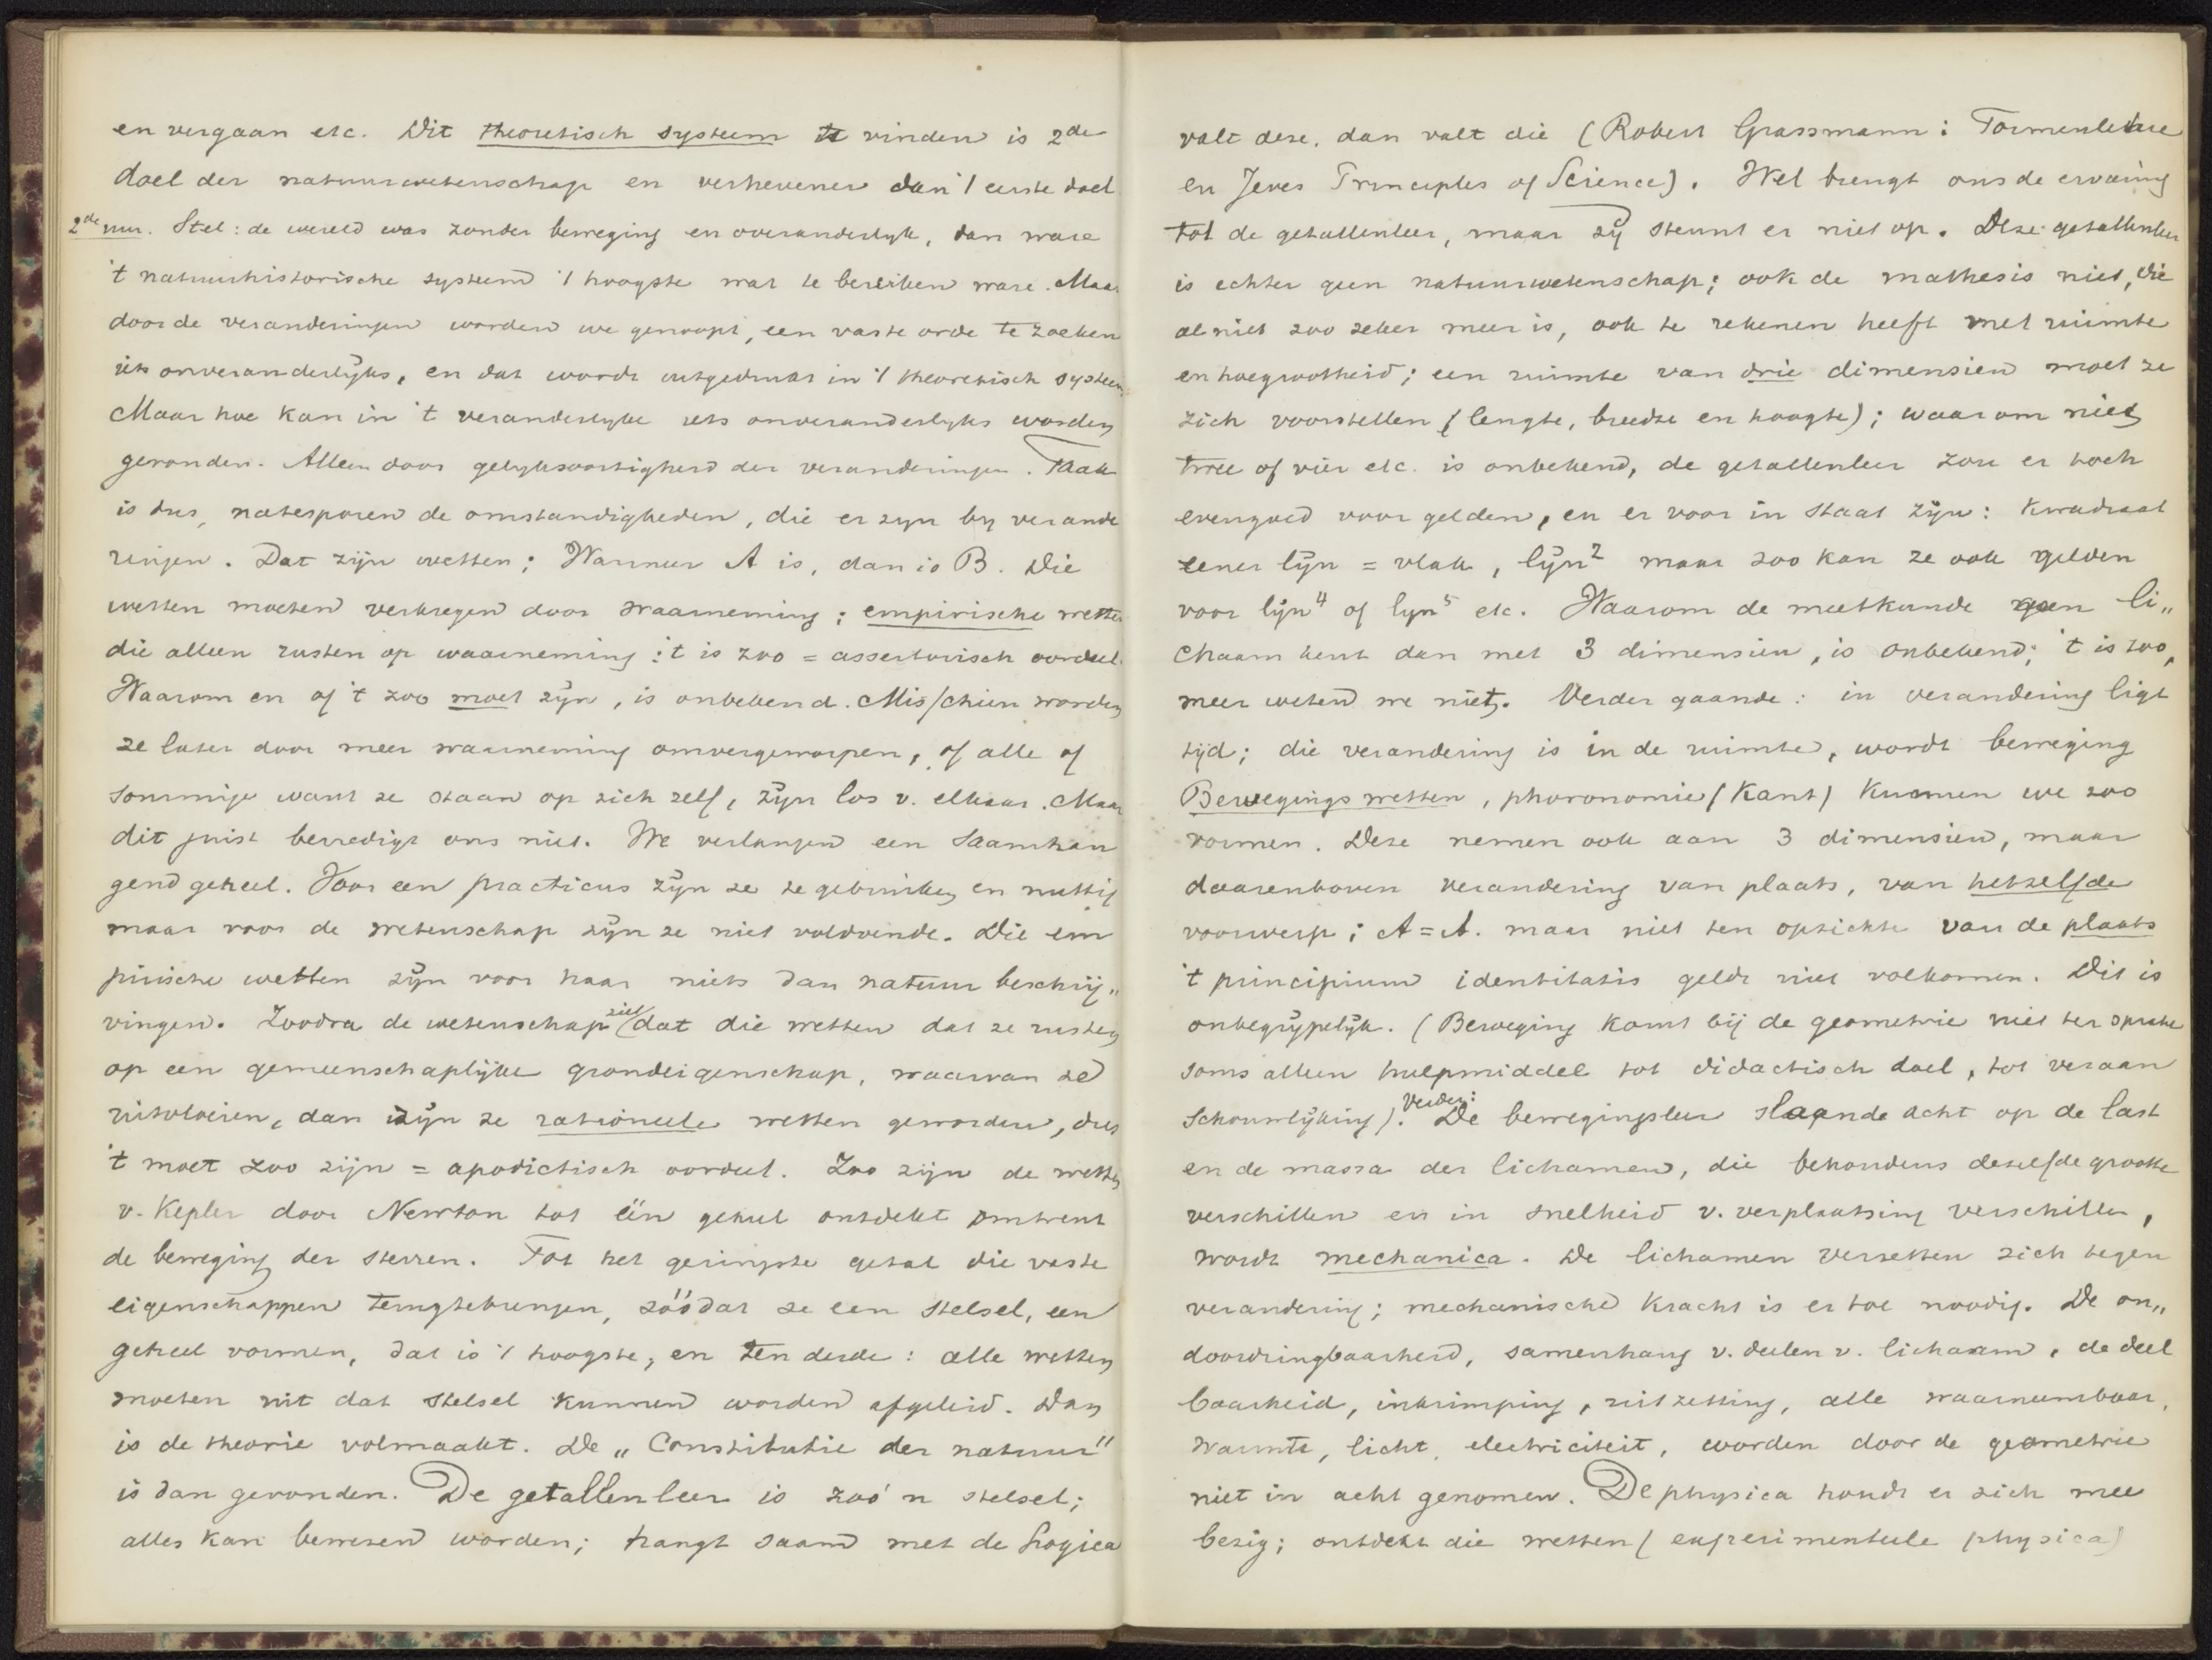 en vergaan etc. Dit theoretisch systeem te vinden is 2de
doel der natuurwetenschap en verhevener dan 't eerste doel.
2de uur. Stel: de wereld was zonder beweging en overanderlyk, dan ware
't natuurhistorische systeem 't hoogste wat te bereiken ware. Maar
door de veranderingen worden we genoopt, een vaste orde te zoeken
iets onveranderlijks, en dat wordt uitgedrukt in 't theoretisch systeem
Maar hoe kan in 't veranderlyke iets onveranderlyks worden
gevonden. Alleen door gelyksoortigheid der veranderingen. Taak
is dus, natesporen de omstandigheden, die er zyn by verande
ringen. Dat zijn wetten; Wanneer A is, dan is B. Die
wetten moeten verkregen door waarneming; empirische wetten
die alleen rusten op waarneming: 't is zoo = assertorisch oordeel.
Waarom en of 't zoo moet zijn, is onbekend. Misschien worden
ze later door meer waarneming omvergeworpen, of alle of
sommige want ze staan op zich zelf, zijn los v. elkaar. Maar
dit juist bevredigt ons niet. We verlangen een saamhan
gend geheel. Voor een practicus zijn ze te gebruiken en nuttig
maar voor de wetenschap zijn ze niet voldoende. Die em
pirische wetten zijn voor haar niets dan natuur beschrij„
vingen. Zoodra de wetenschap ziet dat die wetten dat ze rusten
op een gemeenschaplijke grondeigenschap, waarvan ze
uitvloeien, dan zijn ze rationeele wetten geworden, dus
't moet zoo zijn = apodictisch oordeel. Zoo zijn de wetten
v. Kepler door Newton tot één geheel ontdekt omtrent
de beweging der sterren. Tot het geringste getal die vaste
eigenschappen terugtebrengen, zóódat ze een stelsel, een
geheel vormen, dat is 't hoogste, en ten derde: alle wetten
moeten uit dat stelsel kunnen worden afgeleid. Dan
is de theorie volmaakt. De „Constitutie der natuur"
is dan gevonden. De getallenleer is zoo'n stelsel;
alles kan bewezen worden; hangt saam met de Logica
valt deze, dan valt die (Robert Grassmann: Formenlehre
en Jeves Principles of Science). Wel brengt ons de ervaring
tot de getallenleer, maar zij steunt er niet op. Deze getallenleer
is echter geen natuurwetenschap; ook de mathesis niet, die
al niet zoo zeker meer is, ook te rekenen heeft met ruimte
en hoegrootheid; een ruimte van drie dimensien moet ze
zich voorstellen (lengte, breedte en hoogte); waarom niet
twee of vier etc. is onbekend, de getallenleer zou er toch
evengoed voor gelden, en er voor in staat zijn: kwadraat
eener lijn = vlak, lijn² maar zoo kan ze ook gelden
voor lijn⁴ of lyn⁵ etc. Waarom de meetkunde geen li„
chaam kent dan met 3 dimensien, is onbekend; 't is zoo,
meer weten we niet. Verder gaande: in verandering ligt
tijd; die verandering is in de ruimte, wordt beweging
Bewegingswetten, phoronomie (Kant) kunnen we zoo
vormen. Deze nemen ook aan 3 dimensien, maar
daarenboven verandering van plaats, van hetzelfde
voorwerp; A = A. maar niet ten opzichte van de plaats
't principium identitatis geldt niet volkomen. Dit is
onbegrijpelijk. (Beweging komt bij de geometrie niet ter sprake
soms alleen hulpmiddel tot didactisch doel, tot veraan
schouwlijking). Verder: De bewegingsleer slaande acht op de last
en de massa der lichamen, die behoudens dezelfde grootte
verschillen en in snelheid v. verplaatsing verschillen,
wordt mechanica. De lichamen verzetten zich tegen
verandering; mechanische kracht is er toe noodig. De on„
doordringbaarheid, samenhang v. deelen v. lichaam, de deel
baarheid, inkrimping, uitzetting, alle waarneembaar,
warmte, licht, electriciteit, worden door de geometrie
niet in acht genomen. De physica houdt er zich mee
bezig; ontdekt die wetten (experimenteele physica)